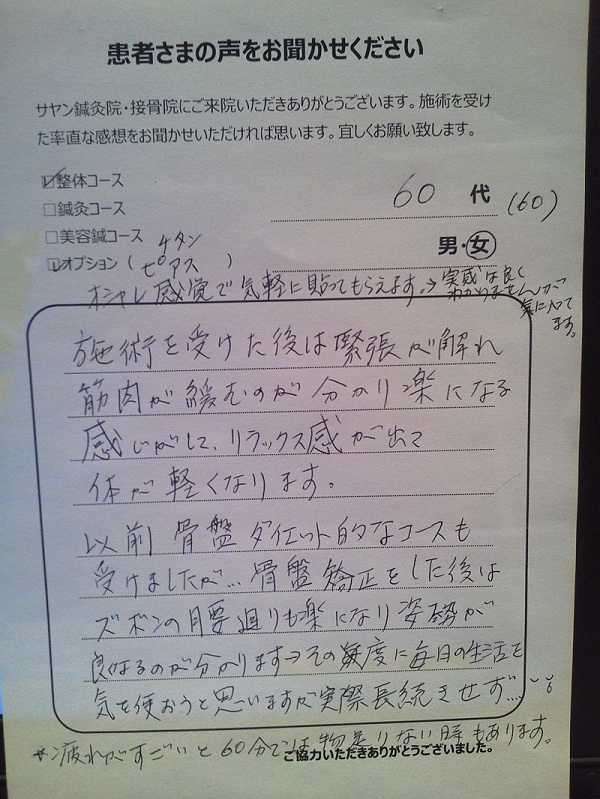 患者さまの声をお聞かせください
サヤン鍼灸院・接骨院にご来院いただきありがとうございます。施術を受け
た率直な感想をお聞かせいただければ思います。宜しくお願い致します。
☑整体コース
60 代 (60)
□鍼灸コース
□美容鍼コース
男・女
チタン
☑オプション( ピアス )
オシャレ感覚で気軽に貼ってもらえます。→実感は良く
わかりませんが
気に入って
ます。
施術を受けた後は緊張が解れ
筋肉が緩むのが分かり楽になる
感じがして、リラックス感が出て
体が軽くなります。
以前骨盤ダイエット的なコースも
受けましたが…骨盤矯正をした後は
ズボンの腰廻りも楽になり姿勢が
良くなるのが分かります→その度に毎日の生活を
気を使おうと思いますが実際長続きせず…
疲れがすごいと60分では物足りない時もあります。
ご協力いただきありがとうございました。